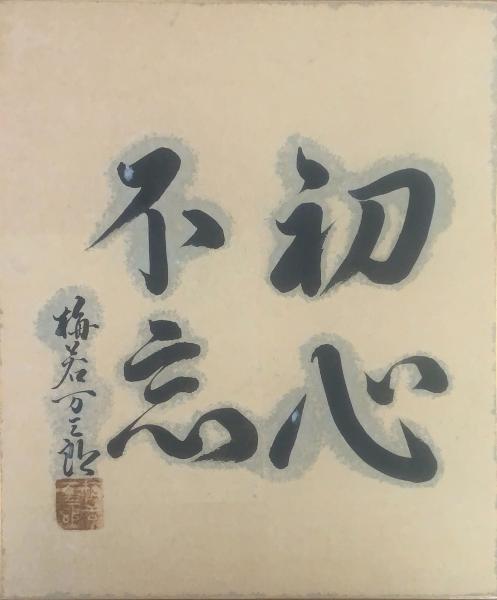 初心
不忘
梅若万三郎